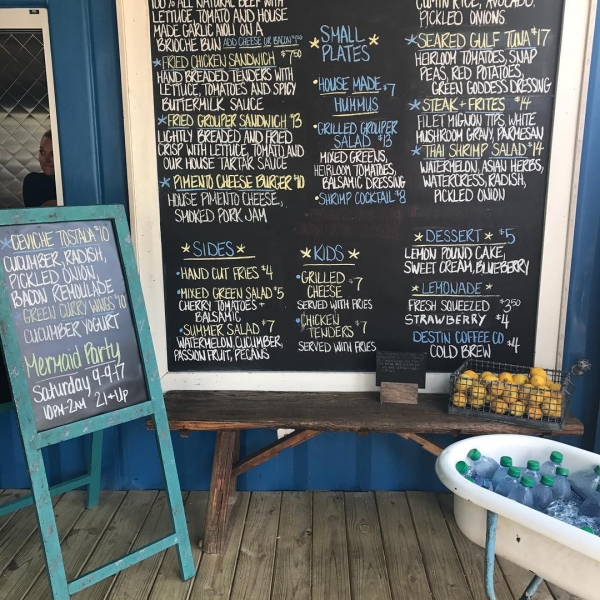 100% ALL NATURAL BEEF WITH
LETTUCE, TOMATO AND HOUSE
MADE GARLIC AIOLI ON A
BRIOCHE BUN ADD CHEESE OR BACON
FRIED CHICKEN SANDWICH $7.50
HAND BREADED TENDERS WITH
LETTUCE, TOMATOES AND SPICY
BUTTERMILK SAUCE
FRIED GROUPER SANDWICH $13
LIGHTLY BREADED AND FRIED
CRISP WITH LETTUCE, TOMATO AND
OUR HOUSE TARTAR SAUCE
PIMENTO CHEESE BURGER $10
HOUSE PIMENTO CHEESE,
SMOKED PORK JAM
SIDES
HAND CUT FRIES $4
MIXED GREEN SALAD $5
CHERRY TOMATOES +
BALSAMIC
SUMMER SALAD $7
WATERMELON, CUCUMBER,
PASSION FRUIT, PECANS
SMALL
PLATES
HOUSE MADE $7
HUMMUS
GRILLED GROUPER
SALAD $13
MIXED GREENS,
HEIRLOOM TOMATOES,
BALSAMIC DRESSING
SHRIMP COCKTAIL $8
KIDS
GRILLED
CHEESE $7
SERVED WITH FRIES
CHICKEN
TENDERS $7
SERVED WITH FRIES
RICE, AVOCADO,
PICKLED ONIONS
SEARED GULF TUNA $17
HEIRLOOM TOMATOES, SNAP
PEAS, RED POTATOES,
GREEN GODDESS DRESSING
STEAK + FRITES $14
FILET MIGNON TIPS, WHITE
MUSHROOM GRAVY, PARMESAN
THAI SHRIMP SALAD $14
WATERMELON, ASIAN HERBS,
WATERCRESS, RADISH,
PICKLED ONION
DESSERT $5
LEMON POUND CAKE,
SWEET CREAM, BLUEBERRY
LEMONADE
FRESH SQUEEZED $3.50
STRAWBERRY $4
DESTIN COFFEE CO $4
COLD BREW
CEVICHE TOSTADA $10
CUCUMBER, RADISH,
PICKLED ONION
BACON REMOULADE
GREEN CURRY WINGS $10
CUCUMBER YOGURT
Mermaid Party
Saturday 9-9-17
10PM-2AM 21+Up